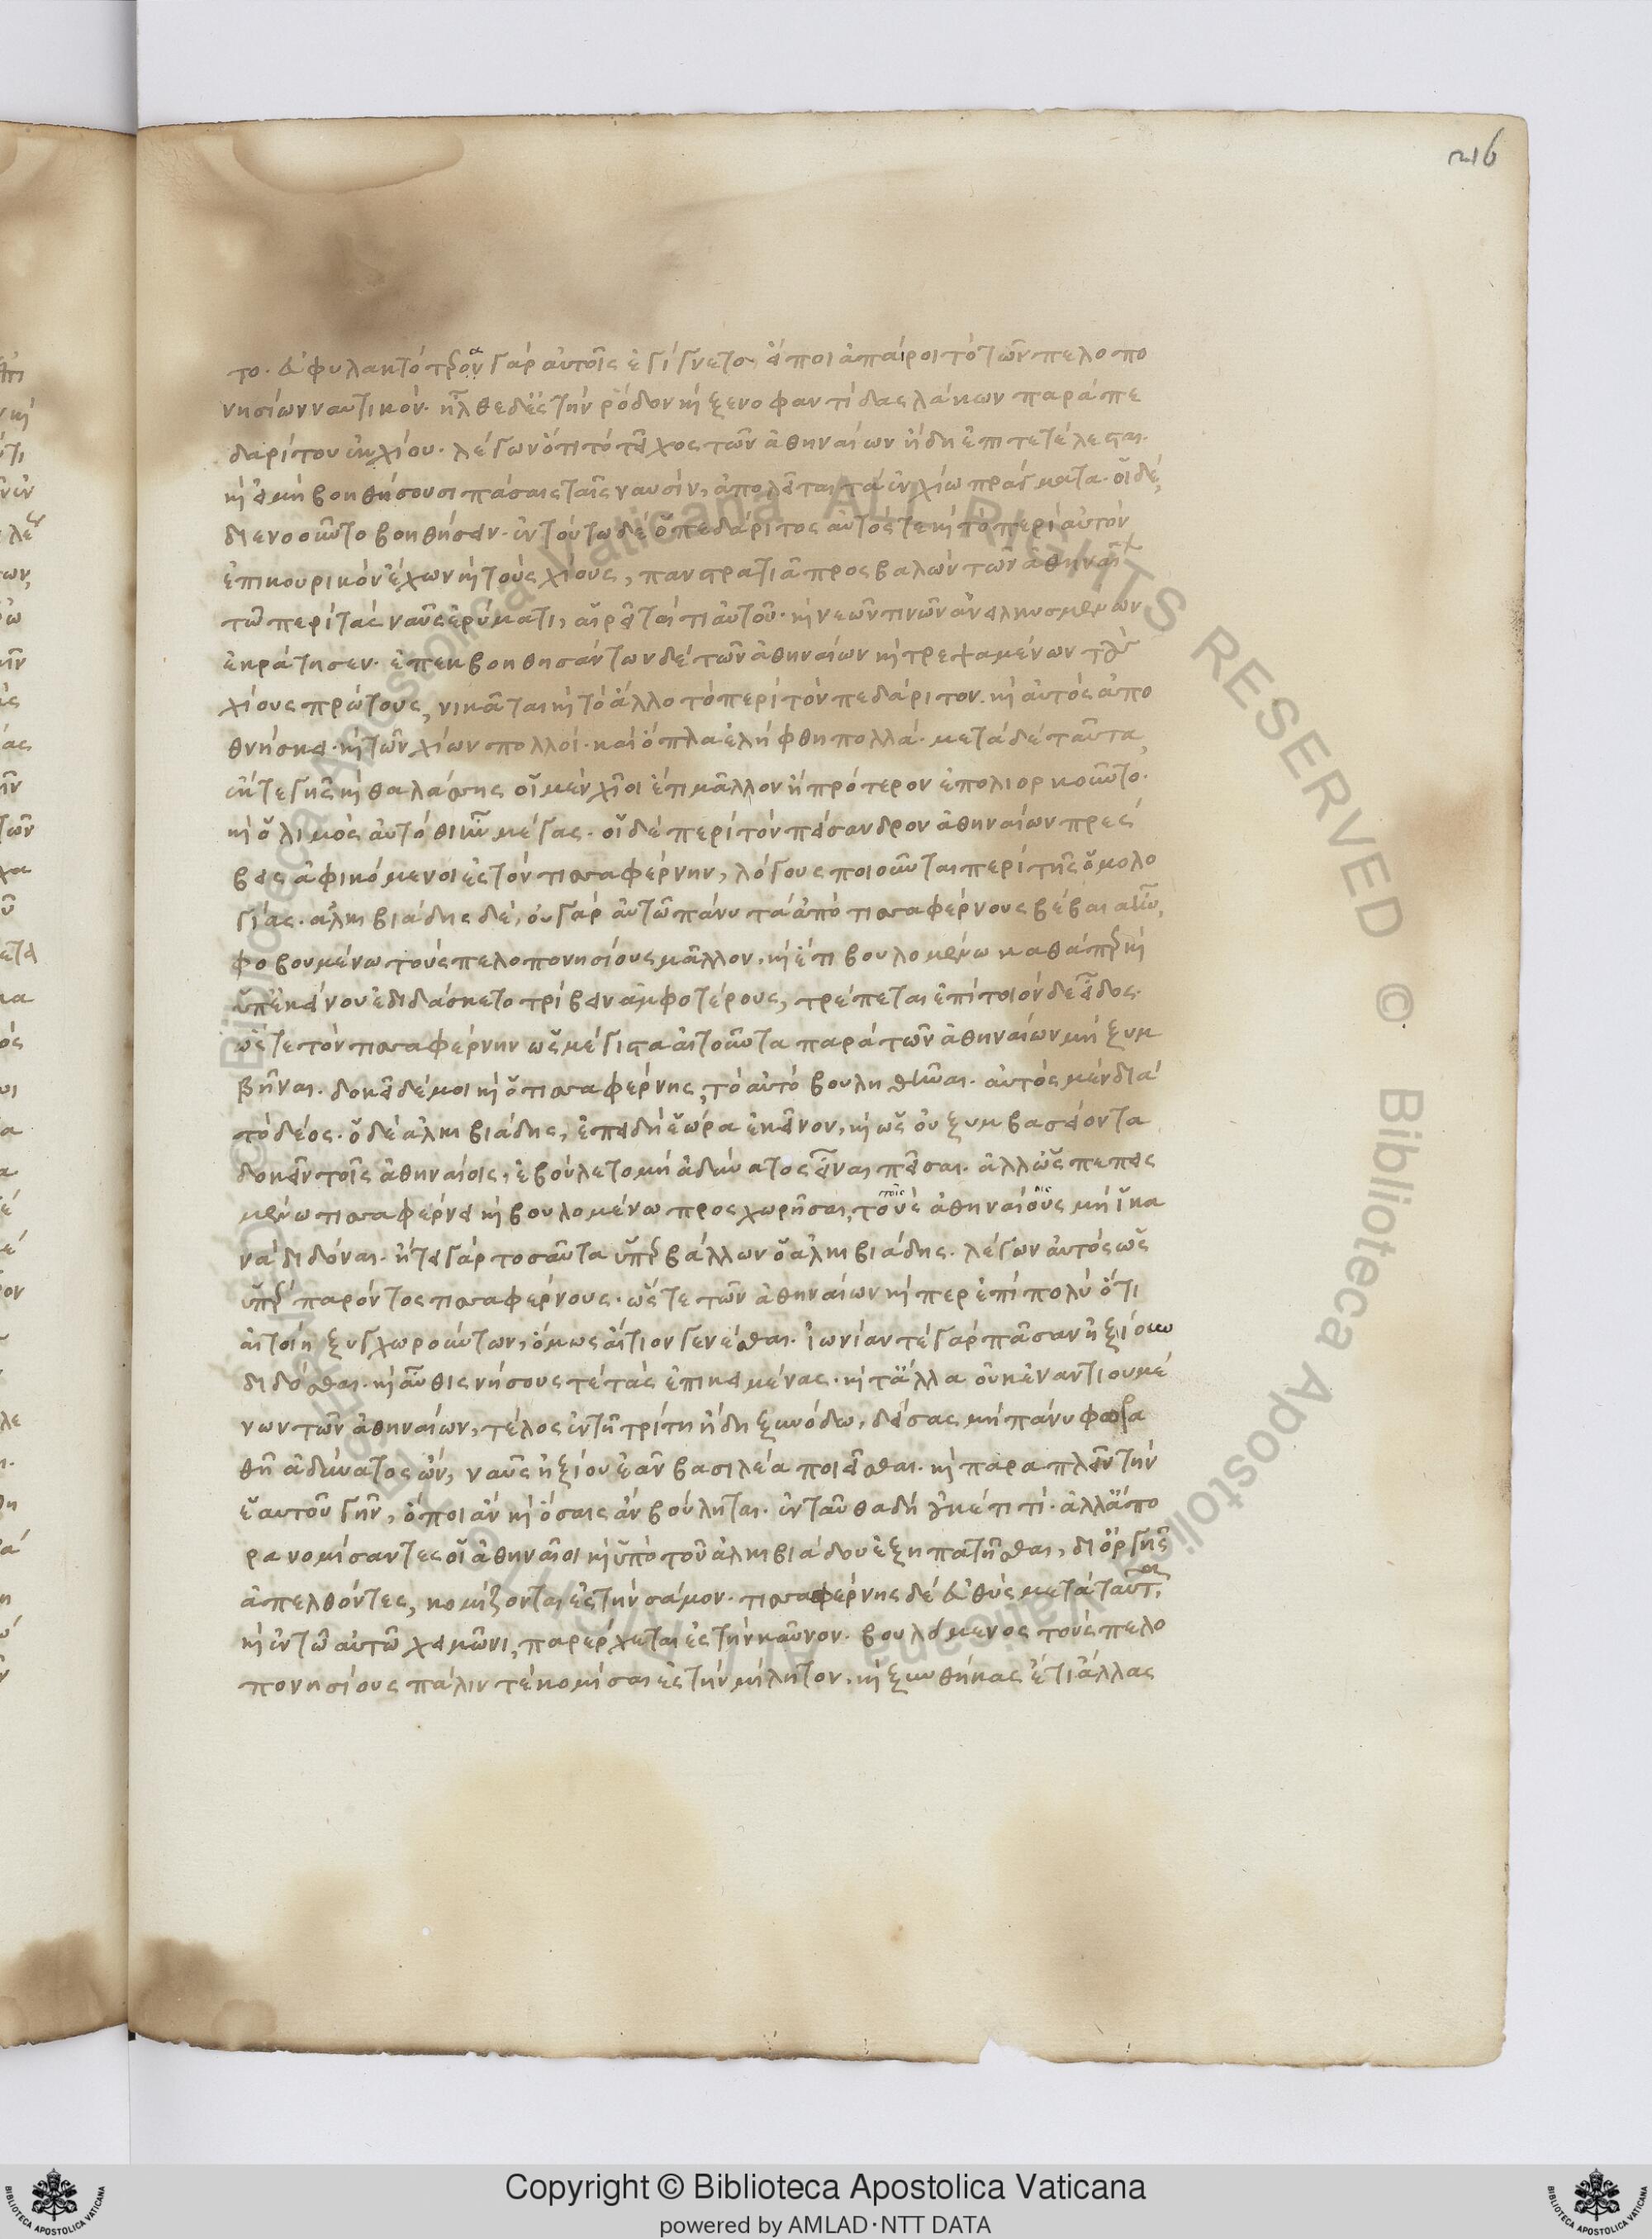 216
το· εὐφυλακτότερον γὰρ αὐτοῖς ἐγίγνετο, εἴ ποι ἀπαίροι τὸ τῶν πελοπο
νησίων ναυτικόν· ἦλθε δὲ ἐς τὴν ῥόδον κὴ ξενοφαντίδας λάκων παρὰ πε
δαρίτου ἐκ χίου· λέγων ὅτι τὸ τεῖχος τῶν ἀθηναίων ἤδη ἐπιτετέλεσται·
κὴ εἰ μὴ βοηθήσουσι πάσαις ταῖς ναυσὶν, ἀπολεῖται τὰ ἐν χίω πράγματα· οἱ δὲ,
διενοοῦντο βοηθήσειν· ἐν τούτω δὲ ὁ πεδάριτος αὐτός τε κὴ τὸ περὶ αὐτὸν
ἐπικουρικὸν ἔχων κὴ τοὺς χίους, πανστρατιᾶ προσβαλὼν τῶν ἀθηναί
τῶ περὶ τὰς ναῦς ἐρύματι, αἱρεῖ τέ τι αὐτοῦ· κὴ νεῶν τινῶν ἀνειλκυσμένων
ἐκράτησεν· ἐπεκβοηθησάντων δὲ τῶν ἀθηναίων κὴ τρεψαμένων τοὺς
χίους πρώτους, νικᾶται κὴ τὸ ἄλλο τὸ περὶ τὸν πεδάριτον. κὴ αὐτὸς ἀπο
θνήσκει· κὴ τῶν χίων πολλοί· καὶ ὅπλα ἐλήφθη πολλά· μετὰ δὲ ταῦτα,
ἔκ τε γῆς κὴ θαλάσσης οἱ μὲν χῖοι ἔτι μᾶλλον ἢ πρότερον ἐπολιορκοῦντο·
κὴ ὁ λιμὸς αὐτόθι ἦν μέγας· οἱ δὲ περὶ τὸν πείσανδρον ἀθηναίων πρέσ
βεις ἀφικόμενοι ἐς τὸν τισσαφέρνην, λόγους ποιοῦνται περὶ τῆς ὁμολο
γίας· ἀλκιβιάδης δὲ, οὐ γὰρ αὐτῶ πάνυ τὰ ἀπὸ τισσαφέρνους βέβαια ἦν,
φοβουμένω τοὺς πελοπονησίους μᾶλλον, κὴ ἔτι βουλομένω καθάπερ κὴ
ὑπ' ἐκείνου ἐδιδάσκετο τρίβειν ἀμφοτέρους, τρέπεται ἐπὶ τοιόνδε εἶδος·
ὥστε τὸν τισσαφέρνην ὡς μέγιστα αἰτοῦντα παρὰ τῶν ἀθηναίων μὴ ξυμ
βῆναι· δοκεῖ δέ μοι κὴ ὁ τισσαφέρνης, τὸ αὐτὸ βουληθῆναι· αὐτὸς μὲν διὰ
τὸ δέος· ὁ δὲ ἀλκιβιάδης, ἐπειδὴ ἑώρα ἐκεῖνον, κὴ ὣς οὐ ξυμβασείοντα
δοκεῖν τοῖς ἀθηναίοις, ἐβούλετο μὴ ἀδύνατος εἶναι πεῖσαι· ἀλλ' ὡς πεπεισ
μένω τισσαφέρνει κὴ βουλομένω προσχωρῆσαι, τοὺς ἀθηναίους μὴ ἱκα
νὰ διδόναι· ᾔτει γὰρ τοσαῦτα ὑπερβάλλων ὁ ἀλκιβιάδης· λέγων αὐτὸς ὡς
ὑπὲρ παρόντος τισσαφέρνους· ὥστε τῶν ἀθηναίων κὴ περ ἐπὶ πολὺ ὅτι
αἰτοίη ξυγχωρούντων, ὅμως αἴτιον γενέσθαι· ἰωνίαν τὲ γὰρ πᾶσαν ἠξίουν
δίδοσθαι· κὴ αὖθις νήσους τὲ τὰς ἐπικειμένας· κὴ τἄλλα οὐκ ἐναντιουμέ
νων τῶν ἀθηναίων, τέλος ἐν τῆ τρίτη ἤδη ξυνόδω, δείσας μὴ πάνυ φωρα
θῆ ἀδύνατος ὤν, ναῦς ἠξίου ἐᾶν βασιλέα ποιεῖσθαι· κὴ παραπλεῖν τὴν
ἑαυτοῦ γῆν, ὅποι ἂν κὴ ὅσαις ἂν βούληται· ἐνταῦθα δὴ οὐκέτι τί· ἀλλ' ἄπο
ρα νομίσαντες οἱ ἀθηναῖοι κὴ ὑπὸ τοῦ ἀλκιβιάδου ἐξηπατῆσθαι, δι' ὀργῆς
ἀπελθόντες, κομίζονται ἐς τὴν σάμον· τισσαφέρνης δὲ εὐθὺς μετὰ ταῦτα,
κὴ ἐν τῶ αὐτῶ χειμῶνι, παρέρχεται ἐς τὴν καῦνον· βουλόμενος τοὺς πελο
πονησίους πάλιν τὲ κομίσαι ἐς τὴν μίλητον, κὴ ξυνθήκας ἔτι ἄλλας
Copyright © Biblioteca Apostolica Vaticana
powered by AMLAD·NTT DATA